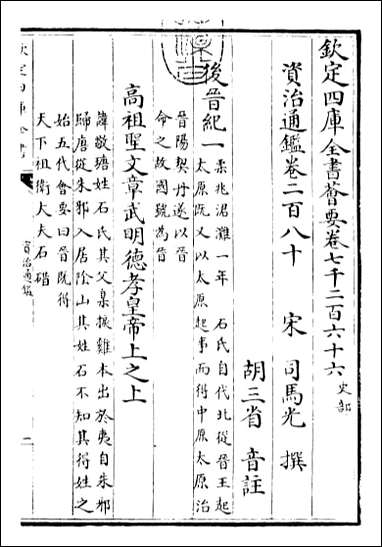 欽定四庫全書薈要卷七千二百六十六 史部
資治通鑑卷二百八十
宋 司馬光 撰
胡三省 音註
後晉紀一
柔兆涒灘一年 石氏自代北從晉王起
太原既又以太原起事而得中原太原治
晉陽契丹遂以晉
命之故國號為晉
高祖聖文章武明德孝皇帝上之上
諱敬瑭姓石氏其父臬捩雞本出於夷自朱邪
歸唐從朱邪入居陰山其姓石不知其得姓之
始五代會要曰晉既得
天下祖衛大夫石碏
欽定四庫全書
資治通鑑